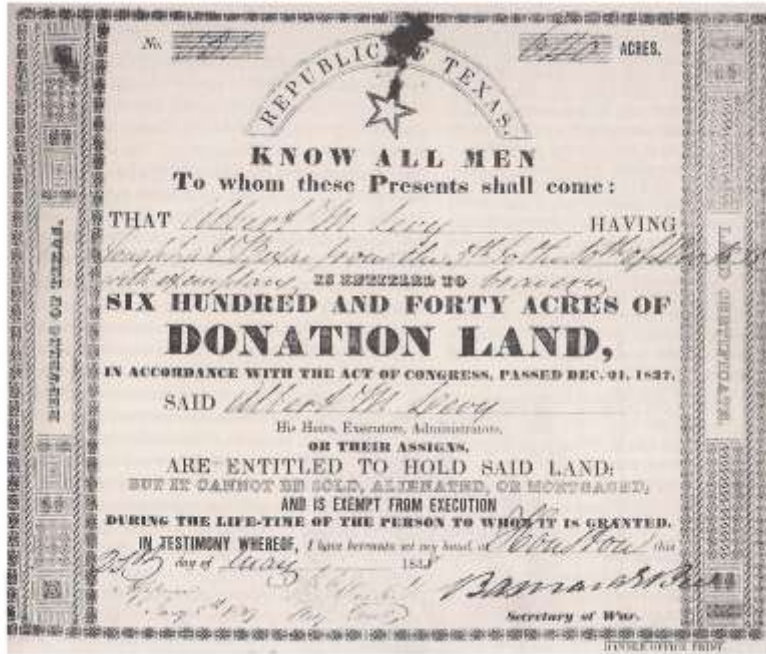 No.
640 ACRES.
REPUBLIC OF TEXAS.
KNOW ALL MEN
To whom these Presents shall come:
THAT Albert M Levy HAVING
fought at Bexar from the 5th to the 10th of
with exemplary IS ENTITLED TO bravery
SIX HUNDRED AND FORTY ACRES OF
DONATION LAND,
IN ACCORDANCE WITH THE ACT OF CONGRESS, PASSED DEC. 21, 1837,
SAID Albert M Levy
His Heirs, Executors, Administrators,
OR THEIR ASSIGNS,
ARE ENTITLED TO HOLD SAID LAND;
BUT IT CANNOT BE SOLD, ALIENATED, OR MORTGAGED;
AND IS EXEMPT FROM EXECUTION
DURING THE LIFE-TIME OF THE PERSON TO WHOM IT IS GRANTED.
IN TESTIMONY WHEREOF, I have hereunto set my hand, at Houston this
day of May 1838
Barnard E Bee
Secretary of War.
REPUBLIC OF TEXAS.
LAND CERTIFICATE.
BANNER OFFICE PRINT.